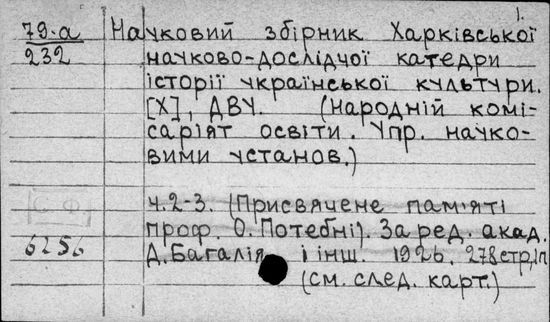 1.
79-а Науковий збірник Харківської
232 науково-дослідчої катедри
історії української культури.
[Х], ДВУ. (Народній комі-
саріят освіти. Упр. науко-
вими установ.)
[С Ф]
ч.2-3. (Присвячене пам'яті
проф. О. Потебні). За ред. акад.
6256 Д. Багалія і інш. 1926. 278стр,іл
(см. след. карт.)